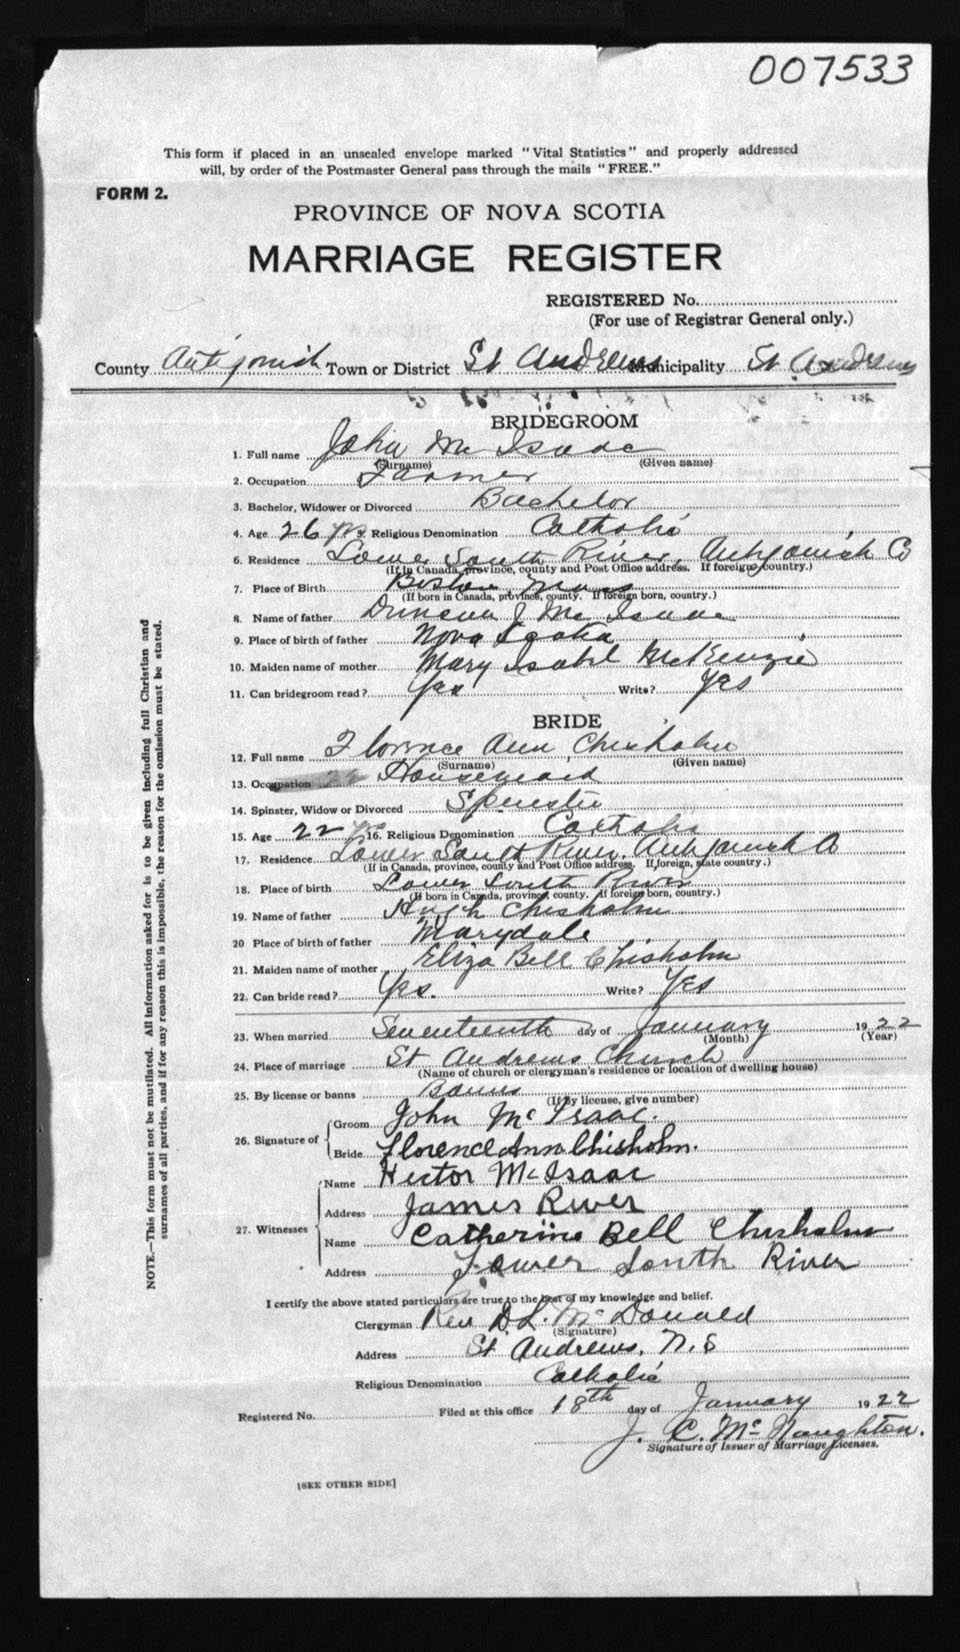 007533
This form if placed in an unsealed envelope marked "Vital Statistics" and properly addressed
will, by order of the Postmaster General pass through the mails "FREE."
FORM 2.
PROVINCE OF NOVA SCOTIA
MARRIAGE REGISTER
REGISTERED No.
(For use of Registrar General only.)
County Antigonish Town or District St Andrews Municipality St Andrews
BRIDEGROOM
1. Full name John Mc Isaac
(Surname) (Given name)
2. Occupation Farmer
3. Bachelor, Widower or Divorced Bachelor
4. Age 26 yrs. Religious Denomination Catholic
6. Residence Lower South River, Antigonish Co
(If in Canada, province, county and Post Office address. If foreign, country.)
7. Place of Birth Boston Mass
(If born in Canada, province, county. If foreign born, country.)
8. Name of father Duncan J Mc Isaac
9. Place of birth of father Nova Scotia
10. Maiden name of mother Mary Isabel McKenzie
11. Can bridegroom read? Yes Write? Yes
BRIDE
12. Full name Florence Ann Chisholm
(Surname) (Given name)
13. Occupation 22 Housemaid
14. Spinster, Widow or Divorced Spinster
15. Age 22 yrs 16. Religious Denomination Catholic
17. Residence Lower South River, Antigonish Co
(If in Canada, province, county and Post Office address. If foreign, state country.)
18. Place of birth Lower South River
(If born in Canada, province, county. If foreign born, country.)
19. Name of father Hugh Chisholm
20 Place of birth of father Marydale
21. Maiden name of mother Eliza Bell Chisholm
22. Can bride read? Yes. Write? Yes
23. When married Seventeenth day of January 1922
(Month) (Year)
24. Place of marriage St Andrews Church
(Name of church or clergyman's residence or location of dwelling house)
25. By license or banns Banns
(If by license, give number)
26. Signature of Groom John Mc Isaac.
Bride Florence Ann Chisholm.
27. Witnesses Name Hector McIsaac
Address James River
Name Catherine Bell Chisholm
Address Lower South River
I certify the above stated particulars are true to the best of my knowledge and belief.
Clergyman Rev D. L. McDonald
(Signature)
Address St. Andrews, N. S
Religious Denomination Catholic
Registered No. Filed at this office 18th day of January 1922
J. C. McNaughton.
Signature of Issuer of Marriage Licenses.
[SEE OTHER SIDE]
NOTE.—This form must not be mutilated. All information asked for is to be given including full Christian and
surnames of all parties, and if for any reason this is impossible, the reason for the omission must be stated.